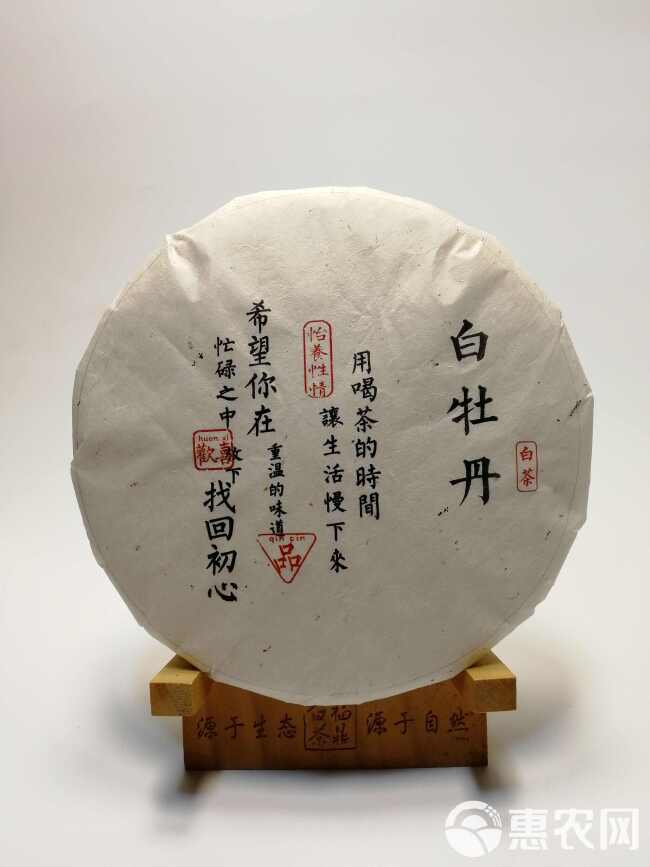 白牡丹
白茶
用喝茶的時間
讓生活慢下來
怡養性情
希望你在
重温的味道
忙碌之中放下
找回初心
huan xi
歡喜
品
源于生态
福鼎
白茶
源于自然
惠农网